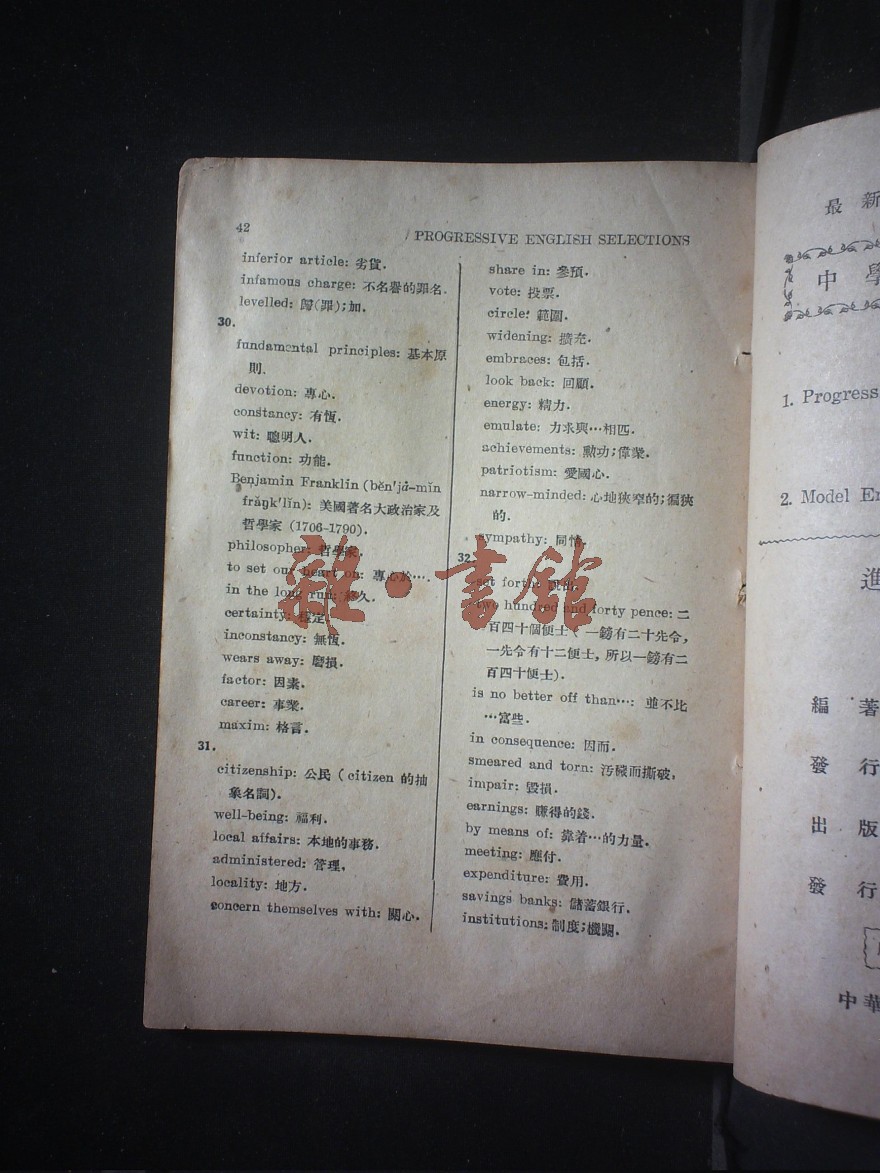 42
PROGRESSIVE ENGLISH SELECTIONS
inferior article: 劣貨.
infamous charge: 不名譽的罪名.
levelled: 歸(罪);加.
30.
fundamental principles: 基本原
則.
devotion: 專心.
constancy: 有恆.
wit: 聰明人.
function: 功能.
Benjamin Franklin (bĕn'já-mĭn
frăŋk'lĭn): 美國著名大政治家及
哲學家 (1706-1790).
philosopher: 哲學家.
to set our heart on: 專心於….
in the long run: 久.
certainty: 定.
inconstancy: 無恆.
wears away: 磨損.
factor: 因素.
career: 事業.
maxim: 格言.
31.
citizenship: 公民 (citizen 的抽
象名詞).
well-being: 福利.
local affairs: 本地的事務.
administered: 管理.
locality: 地方.
concern themselves with: 關心.
share in: 參預.
vote: 投票.
circle: 範圍.
widening: 擴充.
embraces: 包括.
look back: 回顧.
energy: 精力.
emulate: 力求與…相匹.
achievements: 勲功;偉業.
patriotism: 愛國心.
narrow-minded: 心地狹窄的;褊狹
的.
sympathy: 同情.
32.
set forth: 出.
two hundred and forty pence: 二
百四十個便士 (一鎊有二十先令,
一先令有十二便士, 所以一鎊有二
百四十便士).
is no better off than…: 並不比
…富些.
in consequence: 因而.
smeared and torn: 汚穢而撕破.
impair: 毀損.
earnings: 賺得的錢.
by means of: 靠着…的力量.
meeting: 應付.
expenditure: 費用.
savings banks: 儲蓄銀行.
institutions: 制度;機關.
雜·書館
最新
中學
1. Progress
2. Model En
進
編著
發行
出版
發行
中華